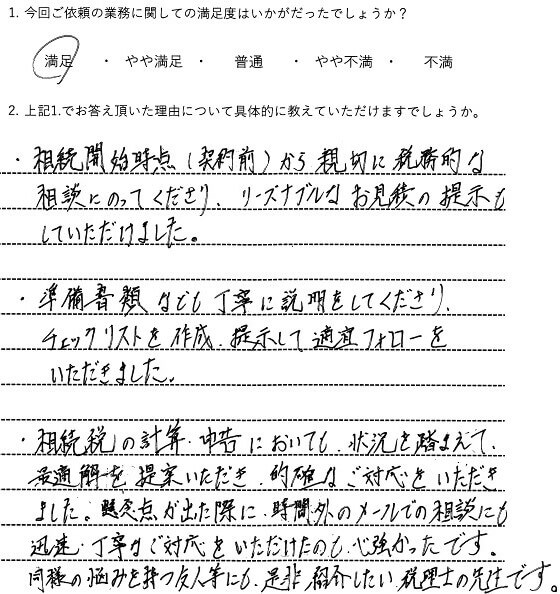 1. 今回ご依頼の業務に関しての満足度はいかがだったでしょうか？
満足 ・ やや満足 ・ 普通 ・ やや不満 ・ 不満
2. 上記1.でお答え頂いた理由について具体的に教えていただけますでしょうか。
・相続開始時点（契約前）から親切に税務的な
相談にのってくださり、リーズナブルなお見積の提示も
していただけました。
・準備書類なども丁寧に説明をしてくださり、
チェックリストを作成、提示して適宜フォローを
いただきました。
・相続税の計算・申告においても、状況を踏まえて、
最適解を提案いただき、的確なご対応をいただき
ました。懸念点が出た際に、時間外のメールでの相談にも
迅速・丁寧なご対応をいただけたのも、心強かったです。
同様の悩みを持つ友人等にも、是非紹介したい税理士の先生です。